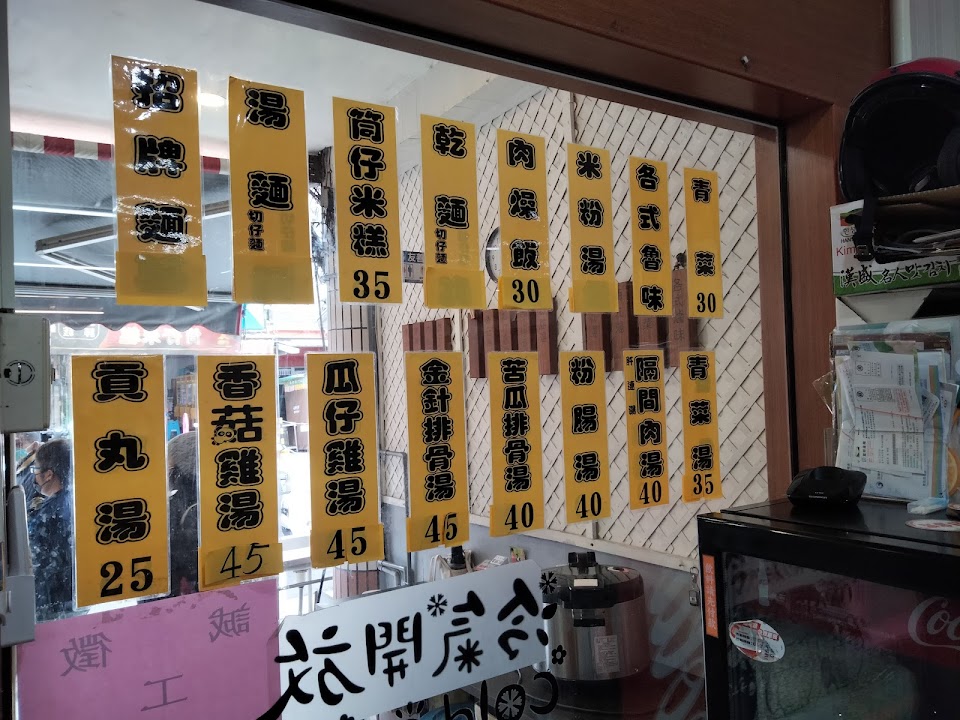 招牌麵
湯麵 切仔麵
筒仔米糕 35
乾麵 切仔麵
肉燥飯 30
米粉湯
各式魯味
青菜 30
貢丸湯 25
香菇雞湯 45
瓜仔雞湯 45
金針排骨湯 45
苦瓜排骨湯 40
粉腸湯 40
隔間肉湯 40
青菜湯 35
冷氣開放
誠徵
工
漢威名人坊
Coc